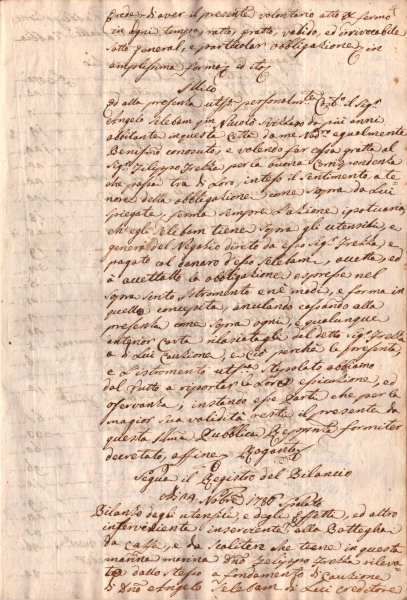 Preda, di aver il presente volontario atto per fermo
in ogni tempo, rato, grato, valido, ed irrevocabile
sotto general, e particolar obbligazione, in
amplissima forma, ed etc.
Illico
ed alla presenza personalmente il Sig.r
Angelo Selebam in da più anni
abbitante in questa Città da me Nod.o egualmente
Benissimo conosciuto, e volendo far cosa grata al
Sig.r Filippo per la buona Corrispondenza
che passa tra di Loro, inteso il sentimento, a te-
nore della obbligazione come sopra da Lui
spiegata, ferma sempre l'azione ipotecaria
ch'egli Selebam tiene sopra gli utensili, e
generi del Negozio diretto da esso Sig.r
pagato col danaro d'esso Selebam, accetta, ed
à accettato la obbligazione espressa nel
sopra scritto Istromento e nè modi, e forma in
quello concepita, anulando cassando alla
presenza come sopra ogni, e qualunque
anterior Carta rilasciatagli dal detto Sig.r
a di Lui Cauzione, e ciò perchè la presente,
e L'istromento stipolato abbiano
dal tutto a riportar la Loro esecuzione, ed
osservanza, instando esse Parti che per la
magior sua validità resti il presente da
questa Pubblica formiter
decretato, affine Rogantes
Segue il Registro del Bilancio
Adi 1786
Bilanzo degli utensili, e degli effetti, ed altro
interveniente inserviente alla Bottegha
da Caffè, e da Scaliter che tiene in questa
marina Dno Filippo rileva-
to dallo stesso a fondamento di Cauzione
di Dno Angelo Selebam di Lui creditore